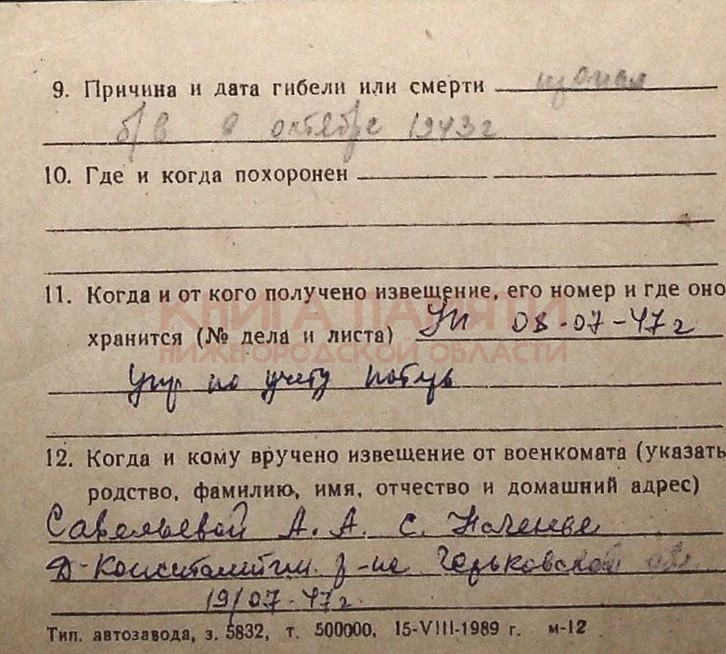 9. Причина и дата гибели или смерти пропал
б/в в октябре 1943 г
10. Где и когда похоронен
КНИГА ПАМЯТИ
НИЖЕГОРОДСКОЙ ОБЛАСТИ
11. Когда и от кого получено извещение, его номер и где оно
хранится (№ дела и листа) 08-07-47 г
Упр по учету потерь
12. Когда и кому вручено извещение от военкомата (указать
родство, фамилию, имя, отчество и домашний адрес)
Савельевой А. А. с.
Д-Константин. р-на Горьковской обл
19/07-47 г.
Тип. автозавода, з. 5832, т. 500000, 15-VIII-1989 г. м-12